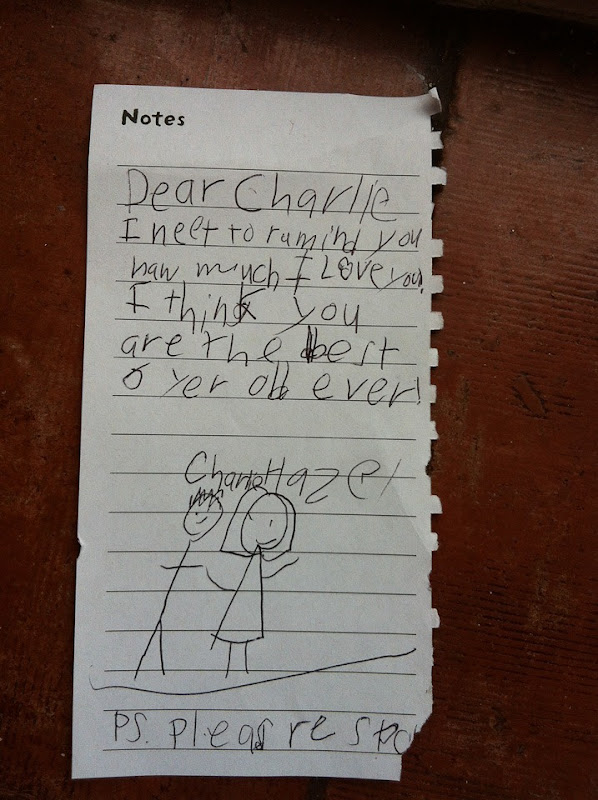 Notes
Dear Charlie
I neet to ramind you
haw much I Love you!
I think you
are the best
6 yer old ever!
Charlie Hazel
PS. pleas respo